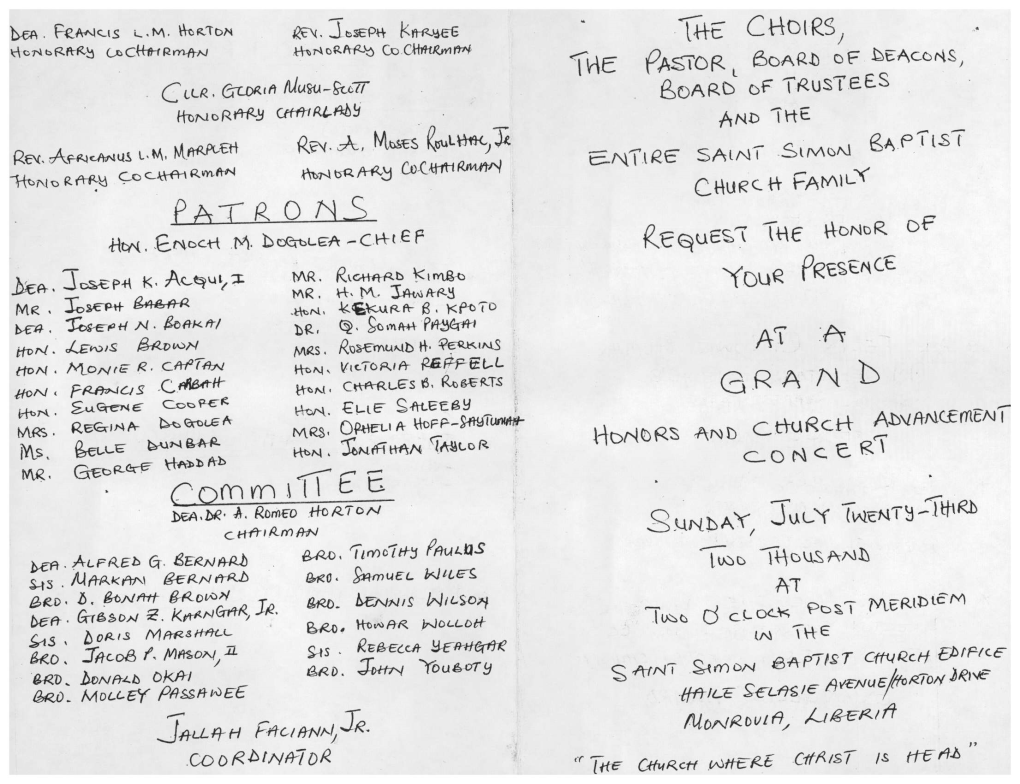 DEA. FRANCIS L.M. HORTON
HONORARY COCHAIRMAN
REV. JOSEPH KARYEE
HONORARY COCHAIRMAN
CLLR. GLORIA MUSU-SCOTT
HONORARY CHAIRLADY
REV. AFRICANUS L.M. MARPLEH
HONORARY COCHAIRMAN
REV. A. MOSES ROULHAC, JR
HONORARY COCHAIRMAN
PATRONS
HON. ENOCH M. DOGOLEA - CHIEF
DEA. JOSEPH K. ACQUI, I
MR. JOSEPH BABAR
DEA. JOSEPH N. BOAKAI
HON. LEWIS BROWN
HON. MONIE R. CAPTAN
HON. FRANCIS CARBAH
HON. EUGENE COOPER
MRS. REGINA DOGOLEA
MS. BELLE DUNBAR
MR. GEORGE HADDAD
MR. RICHARD KIMBO
MR. H.M. JAWARY
HON. KEKURA B. KPOTO
DR. Q. SOMAH PAYGAI
MRS. ROSEMUND H. PERKINS
HON. VICTORIA REFFELL
HON. CHARLES B. ROBERTS
HON. ELIE SALEEBY
MRS. OPHELIA HOFF-SAYTUMAH
HON. JONATHAN TAYLOR
COMMITTEE
DEA. DR. A. ROMEO HORTON
CHAIRMAN
DEA. ALFRED G. BERNARD
SIS. MARKAN BERNARD
BRO. D. BONAH BROWN
DEA. GIBSON Z. KARNGAR, JR.
SIS. DORIS MARSHALL
BRO. JACOB P. MASON, II
BRO. DONALD OKAI
BRO. MOLLEY PASSAWEE
BRO. TIMOTHY PAULUS
BRO. SAMUEL WILES
BRO. DENNIS WILSON
BRO. HOWAR WOLLOH
SIS. REBECCA YEAHGAR
BRO. JOHN YOUBOTY
JALLAH FACIANN, JR.
COORDINATOR
THE CHOIRS,
THE PASTOR, BOARD OF DEACONS,
BOARD OF TRUSTEES
AND THE
ENTIRE SAINT SIMON BAPTIST
CHURCH FAMILY
REQUEST THE HONOR OF
YOUR PRESENCE
AT A
GRAND
HONORS AND CHURCH ADVANCEMENT
CONCERT
SUNDAY, JULY TWENTY-THIRD
TWO THOUSAND
AT
TWO O'CLOCK POST MERIDIEM
IN THE
SAINT SIMON BAPTIST CHURCH EDIFICE
HAILE SELASIE AVENUE/HORTON DRIVE
MONROVIA, LIBERIA
"THE CHURCH WHERE CHRIST IS HEAD"